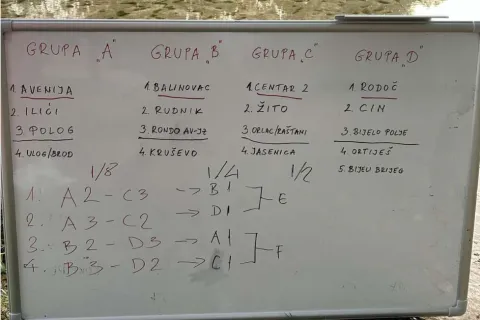 GRUPA „A" GRUPA „B" GRUPA „C" GRUPA „D"
1. AVENIJA 1. BALINOVAC 1. CENTAR 2 1. RODOČ
2. ILIĆI 2. RUDNIK 2. ŽITO 2. CIM
3. POLOG 3. RONDO AV-JZ 3. ORLAC/RAŠTANI 3. BIJELO POLJE
4. ULOG/BROD 4. KRUŠEVO 4. JASENICA 4. ORTIJEŠ
5. BIJELI BRIJEG
1/8 1/4 1/2
1. A2 - C3 → B1
E
2. A3 - C2 → D1
3. B2 - D3 → A1
F
4. B3 - D2 → C1